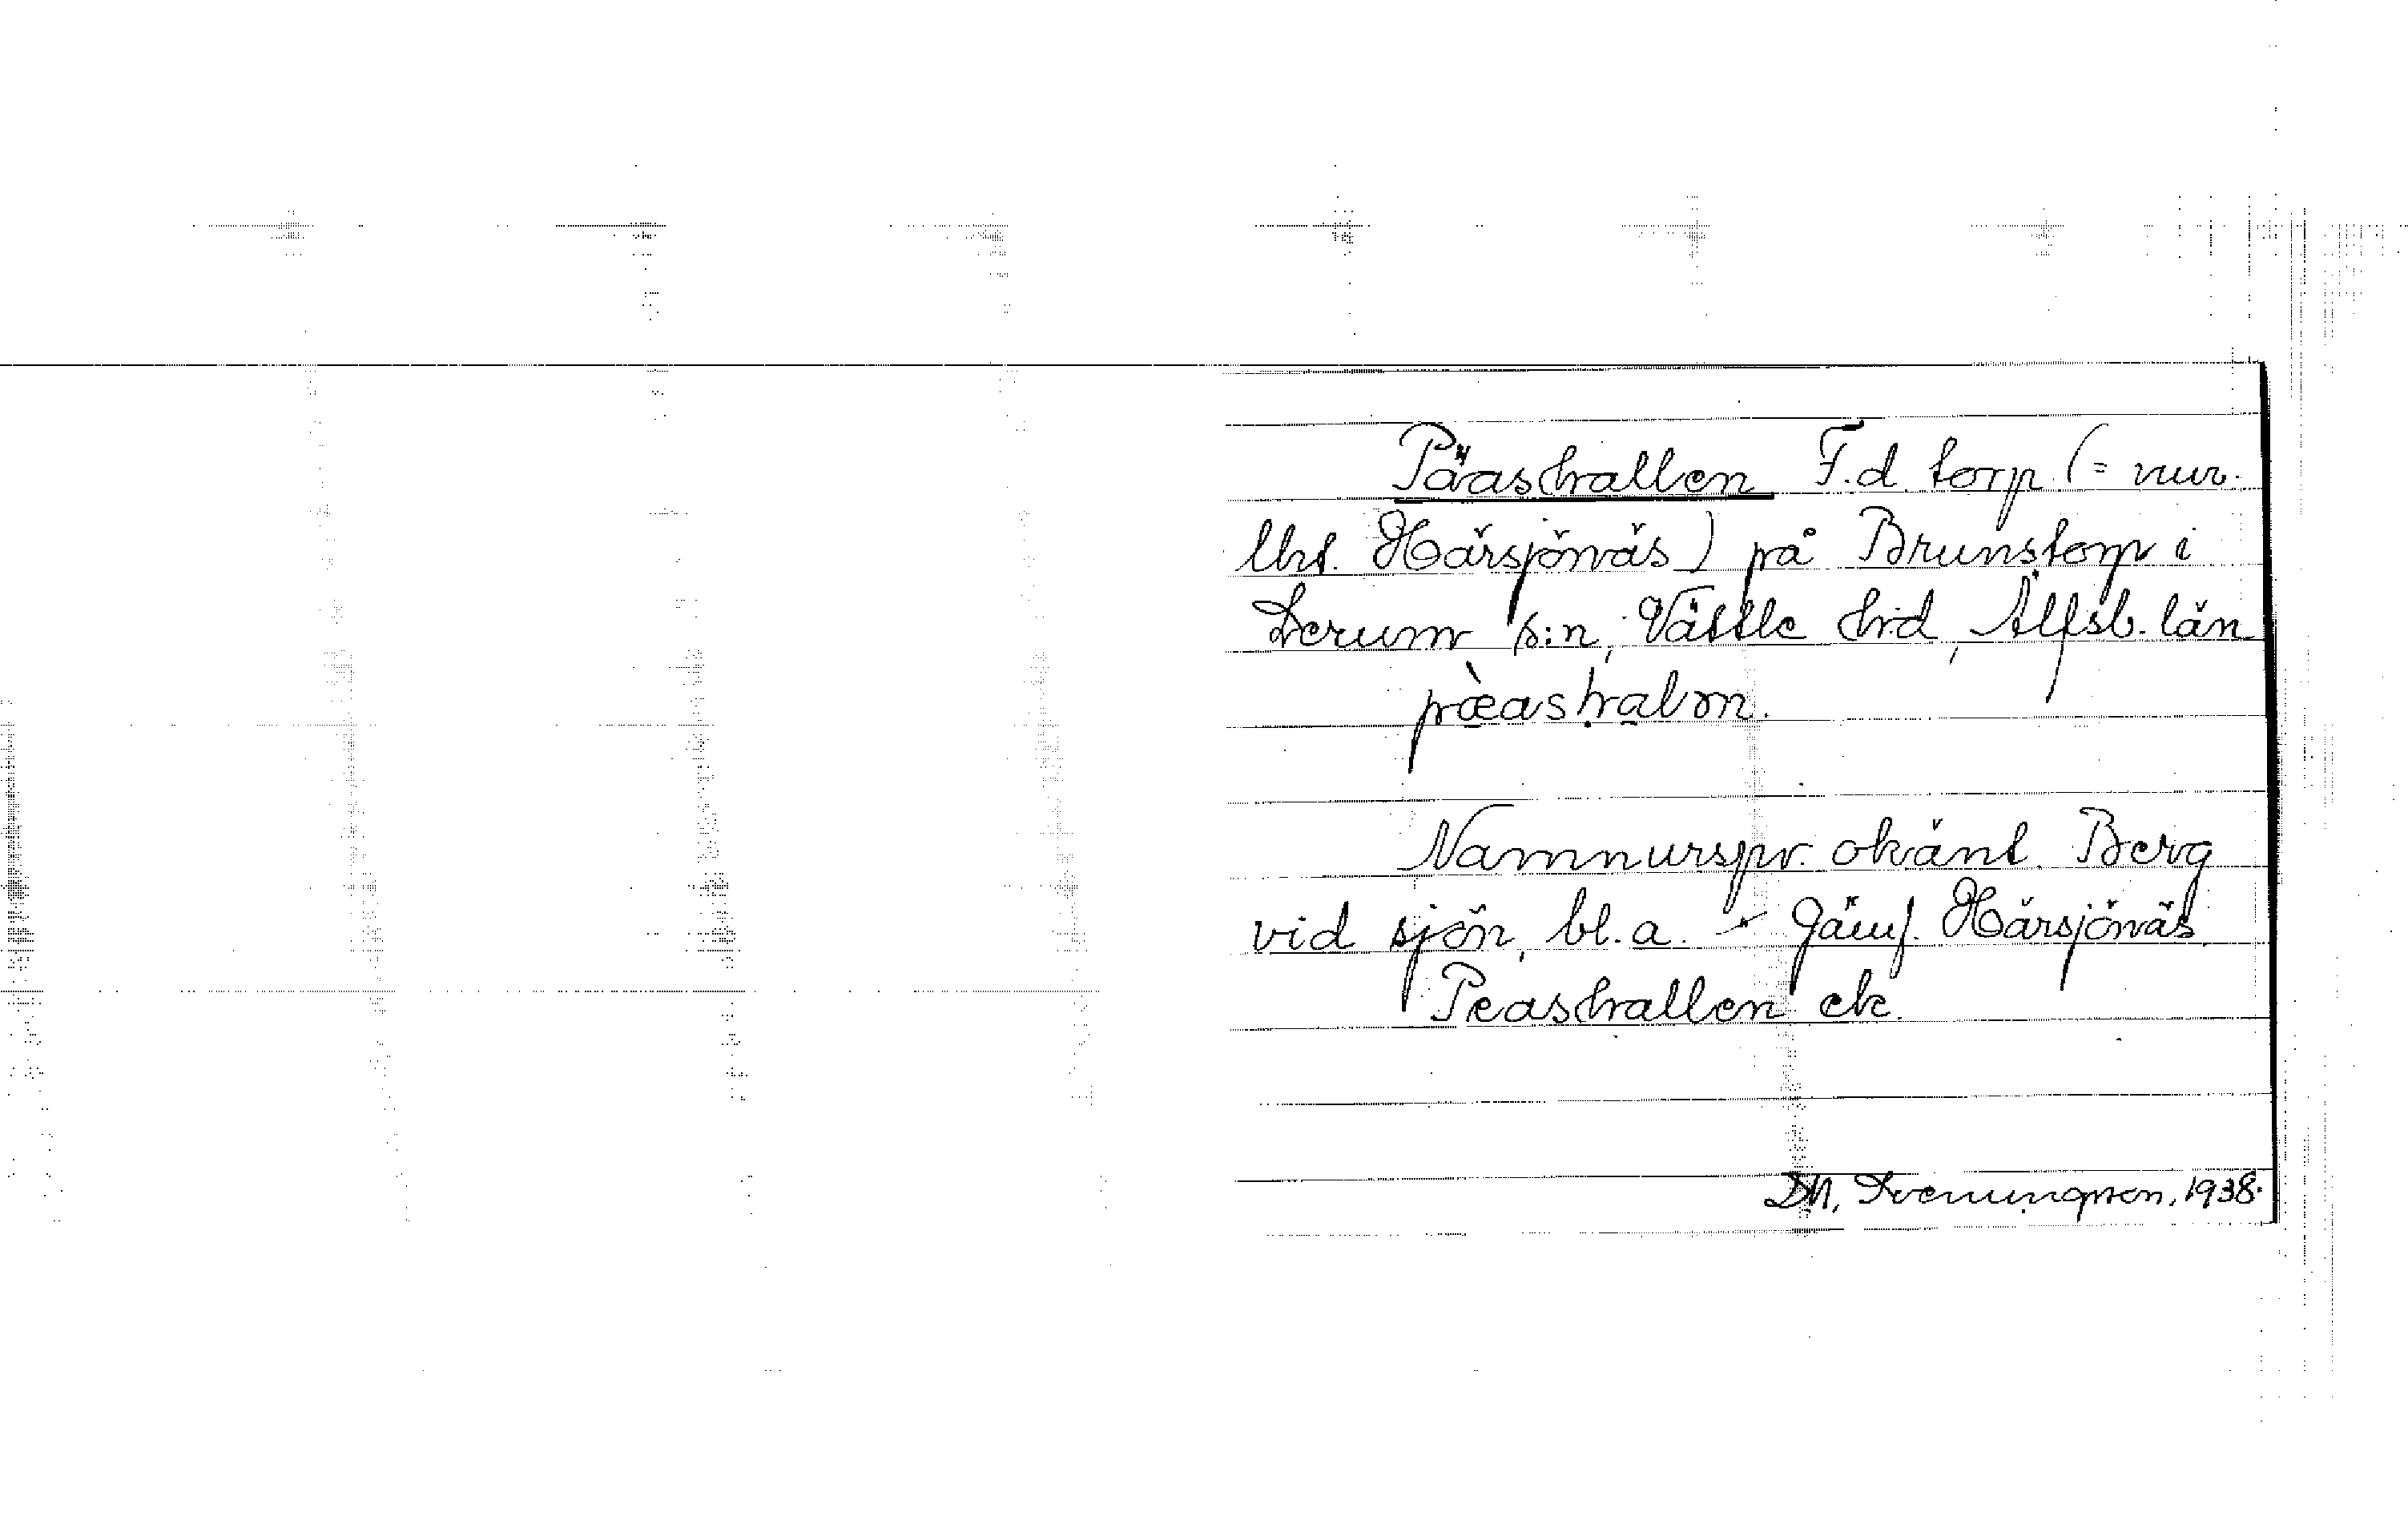 Päashallen F.d. torp (= nuv.
lht. Härsjönäs) på Brunstorp i
Lerum s:n, Vättle hd, Älfsb. län
pæashalən.
Namnurspr. okänt. Berg
vid sjön, bl.a. - Jämf. Härsjönäs,
Peashallen etc.
1938.